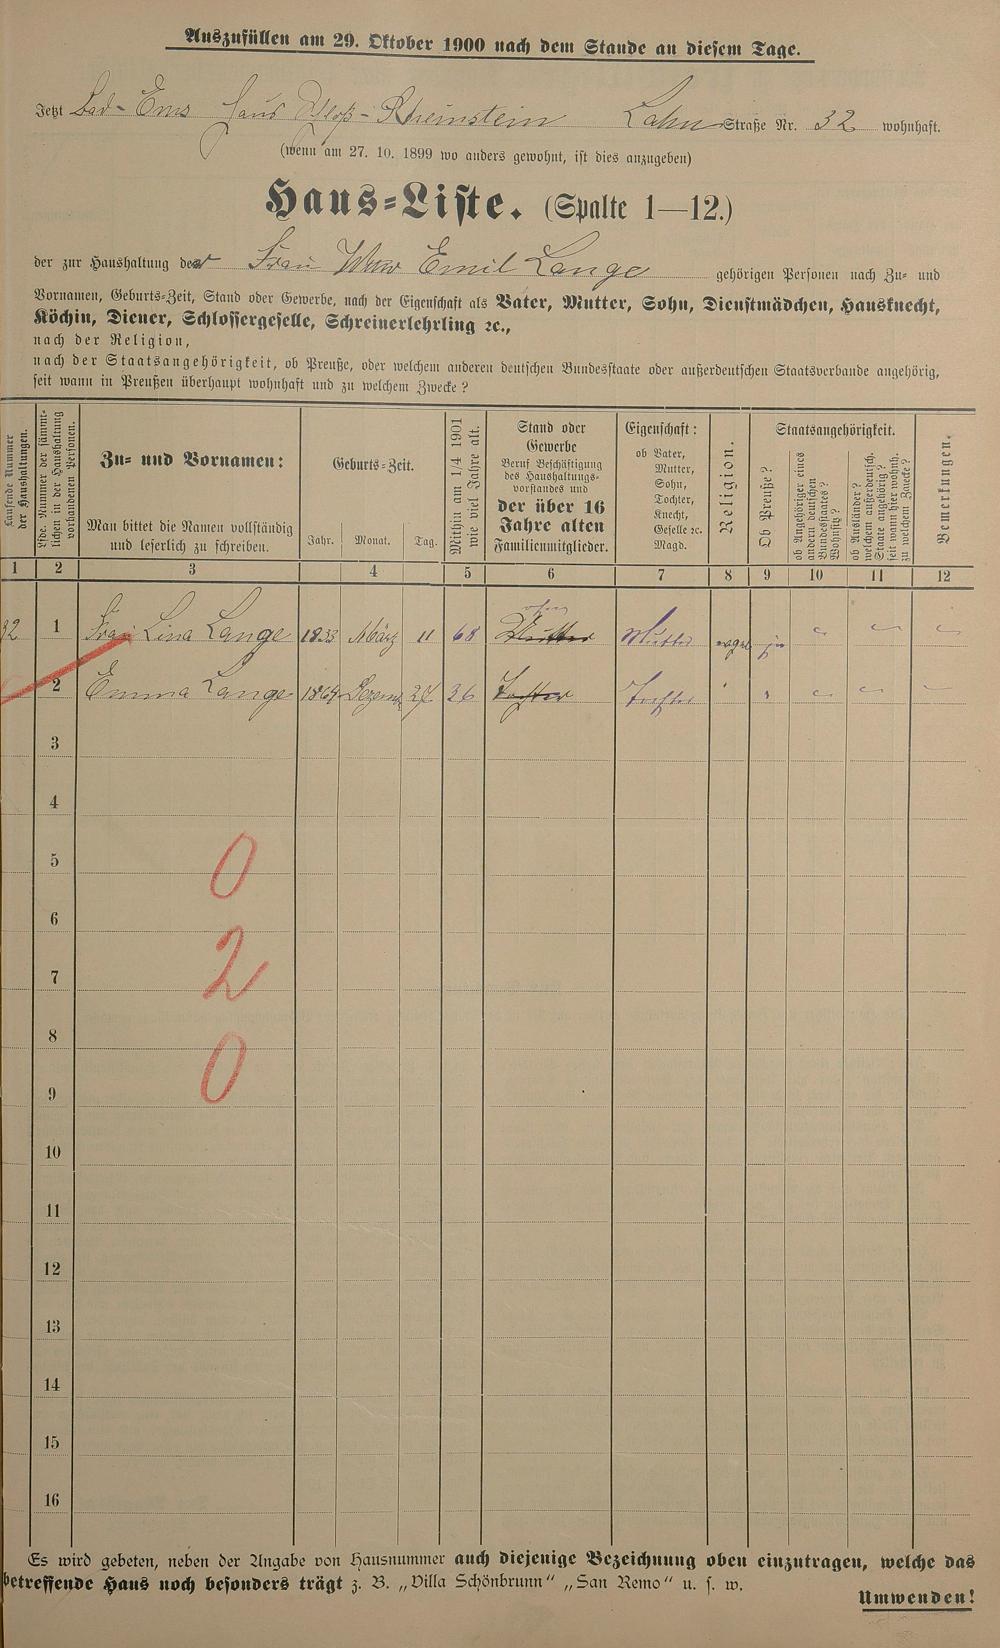 Auszufüllen am 29. Oktober 1900 nach dem Stande an diesem Tage.
Jetzt Bad-Ems Haus Schloß-Rheinstein Lahn Straße Nr. 32 wohnhaft.
(wenn am 27. 10. 1899 wo anders gewohnt, ist dies anzugeben)
Haus-Liste. (Spalte 1—12.)
der zur Haushaltung der Frau Wwe Emil Lange gehörigen Personen nach Zu- und
Vornamen, Geburts-Zeit, Stand oder Gewerbe, nach der Eigenschaft als Vater, Mutter, Sohn, Dienstmädchen, Hausknecht,
Köchin, Diener, Schlossergeselle, Schreinerlehrling ꝛc.,
nach der Religion,
nach der Staatsangehörigkeit, ob Preuße, oder welchem anderen deutschen Bundesstaate oder außerdeutschen Staatsverbande angehörig,
seit wann in Preußen überhaupt wohnhaft und zu welchem Zwecke?
Laufende Nummer
der Haushaltungen.
Lfde. Nummer der sämmt-
lichen in der Haushaltung
vorhandenen Personen.
Zu- und Vornamen:
Man bittet die Namen vollständig
und leserlich zu schreiben.
Geburts-Zeit.
Jahr. Monat. Tag.
Mithin am 1/4 1901
wie viel Jahre alt.
Stand oder
Gewerbe
Beruf Beschäftigung
des Haushaltungs-
vorstandes und
der über 16
Jahre alten
Familienmitglieder.
Eigenschaft:
ob Vater,
Mutter,
Sohn,
Tochter,
Knecht,
Geselle ꝛc.
Magd.
Religion.
Staatsangehörigkeit.
Ob Preuße?
ob Angehöriger eines
andern deutschen
Bundesstaates?
Wohnsitz?
ob Ausländer?
welchem außerdeutsch.
Staate angehörig?
seit wann hier wohnh.
zu welchem Zwecke?
Bemerkungen.
1 2 3 4 5 6 7 8 9 10 11 12
32 1 Frau Lina Lange 1833 März 11 68 ohne Mutter Mutter evgl ja
2 Emma Lange 1864 Dezemb 24 36 Tochter Tochter " "
3
4
5
0
6
7
2
8
9
0
10
11
12
13
14
15
16
Es wird gebeten, neben der Angabe von Hausnummer auch diejenige Bezeichnung oben einzutragen, welche das
betreffende Haus noch besonders trägt z. B. „Villa Schönbrunn“ „San Remo“ u. s. w.
Umwenden!